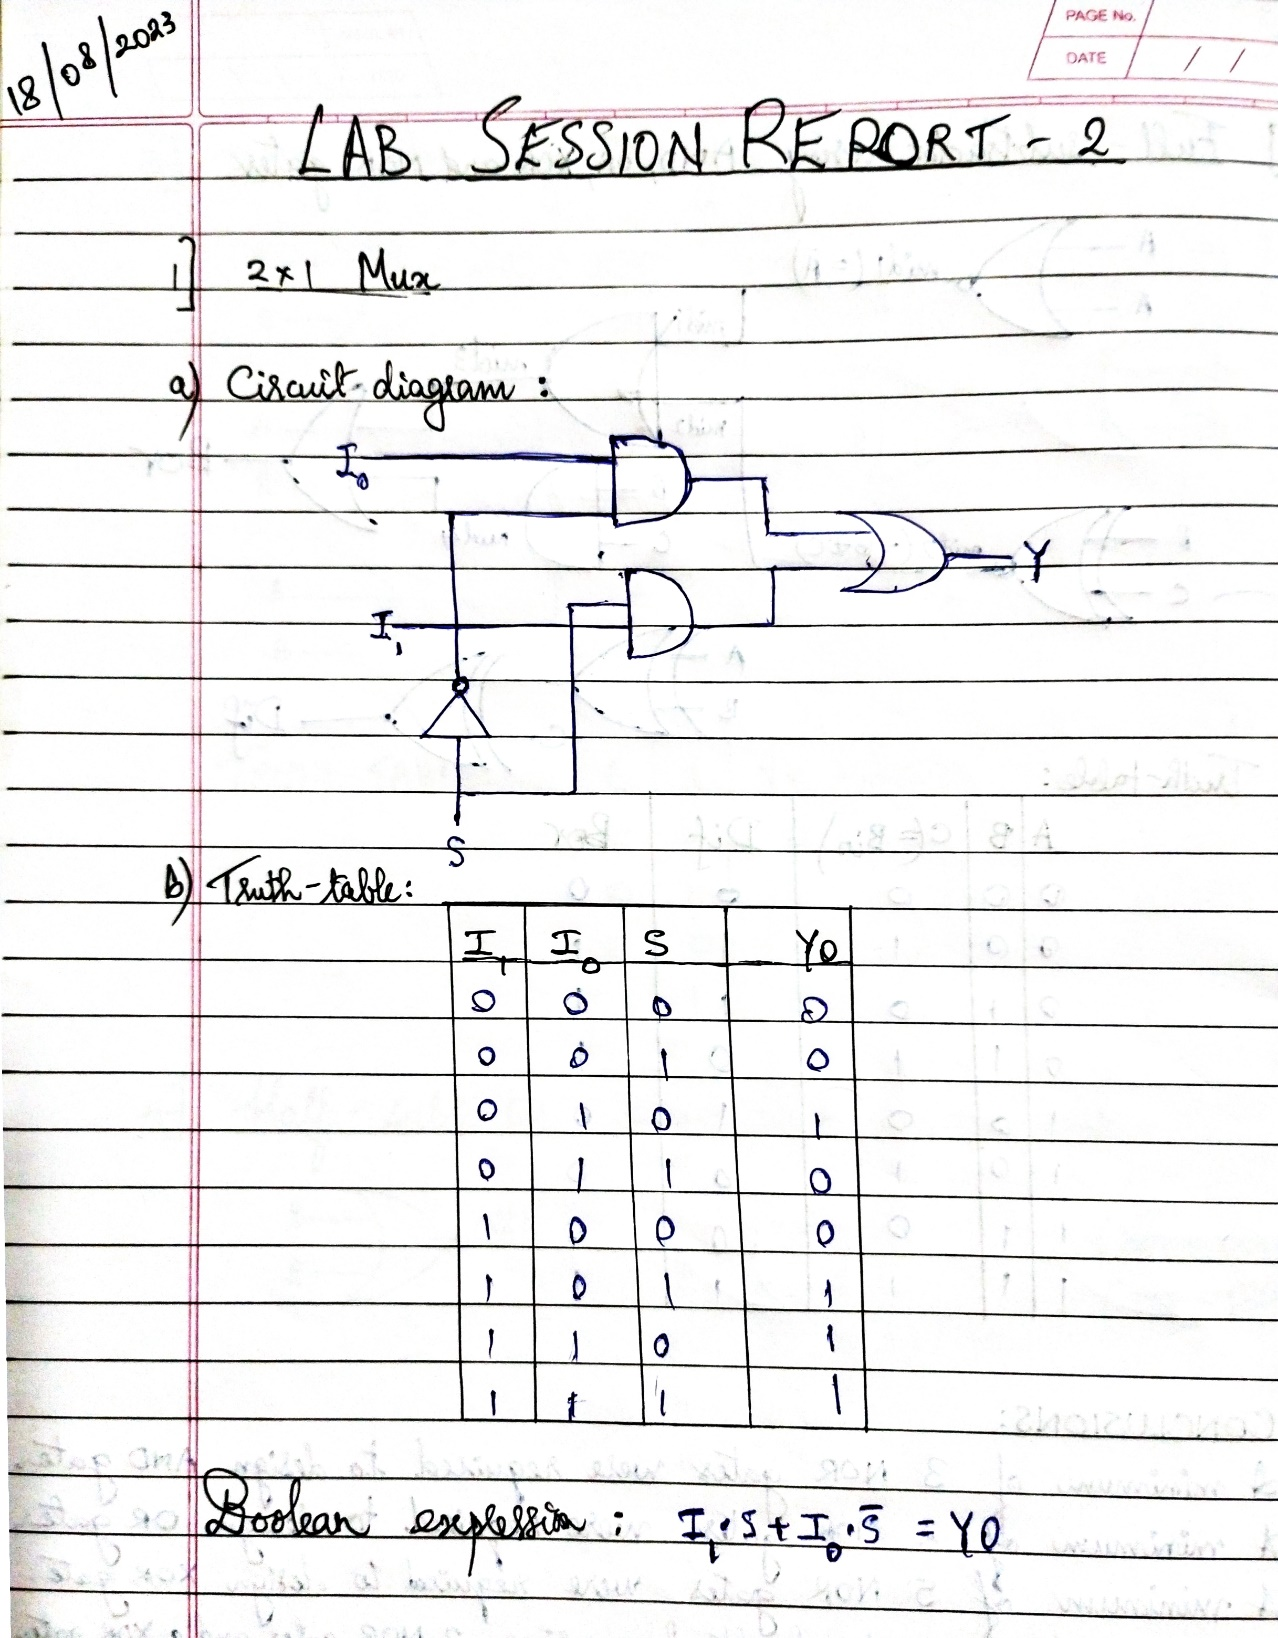 18/08/2023
PAGE No.
DATE / /
LAB SESSION REPORT - 2
1] 2×1 Mux
a) Circuit diagram :
I₀
Y
I₁
S
b) Truth-table:
I₁ I₀ S Y0
0 0 0 0
0 0 1 0
0 1 0 1
0 1 1 0
1 0 0 0
1 0 1 1
1 1 0 1
1 1 1 1
Boolean expression : I₁·S + I₀·S̅ = Y0